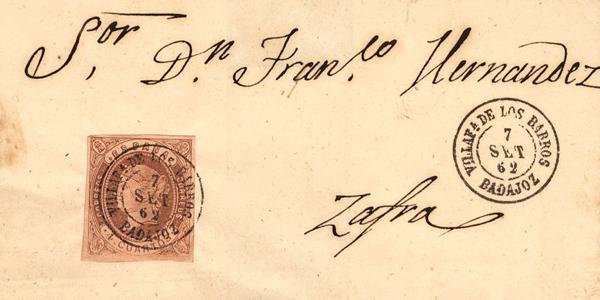 Sor. Dn. Franco. Hernandez
VILLAFA DE LOS BARROS
7
SET
62
BADAJOZ
VILLAFA DE LOS BARROS
7
SET
62
BADAJOZ
4 CUARTOS
Zafra